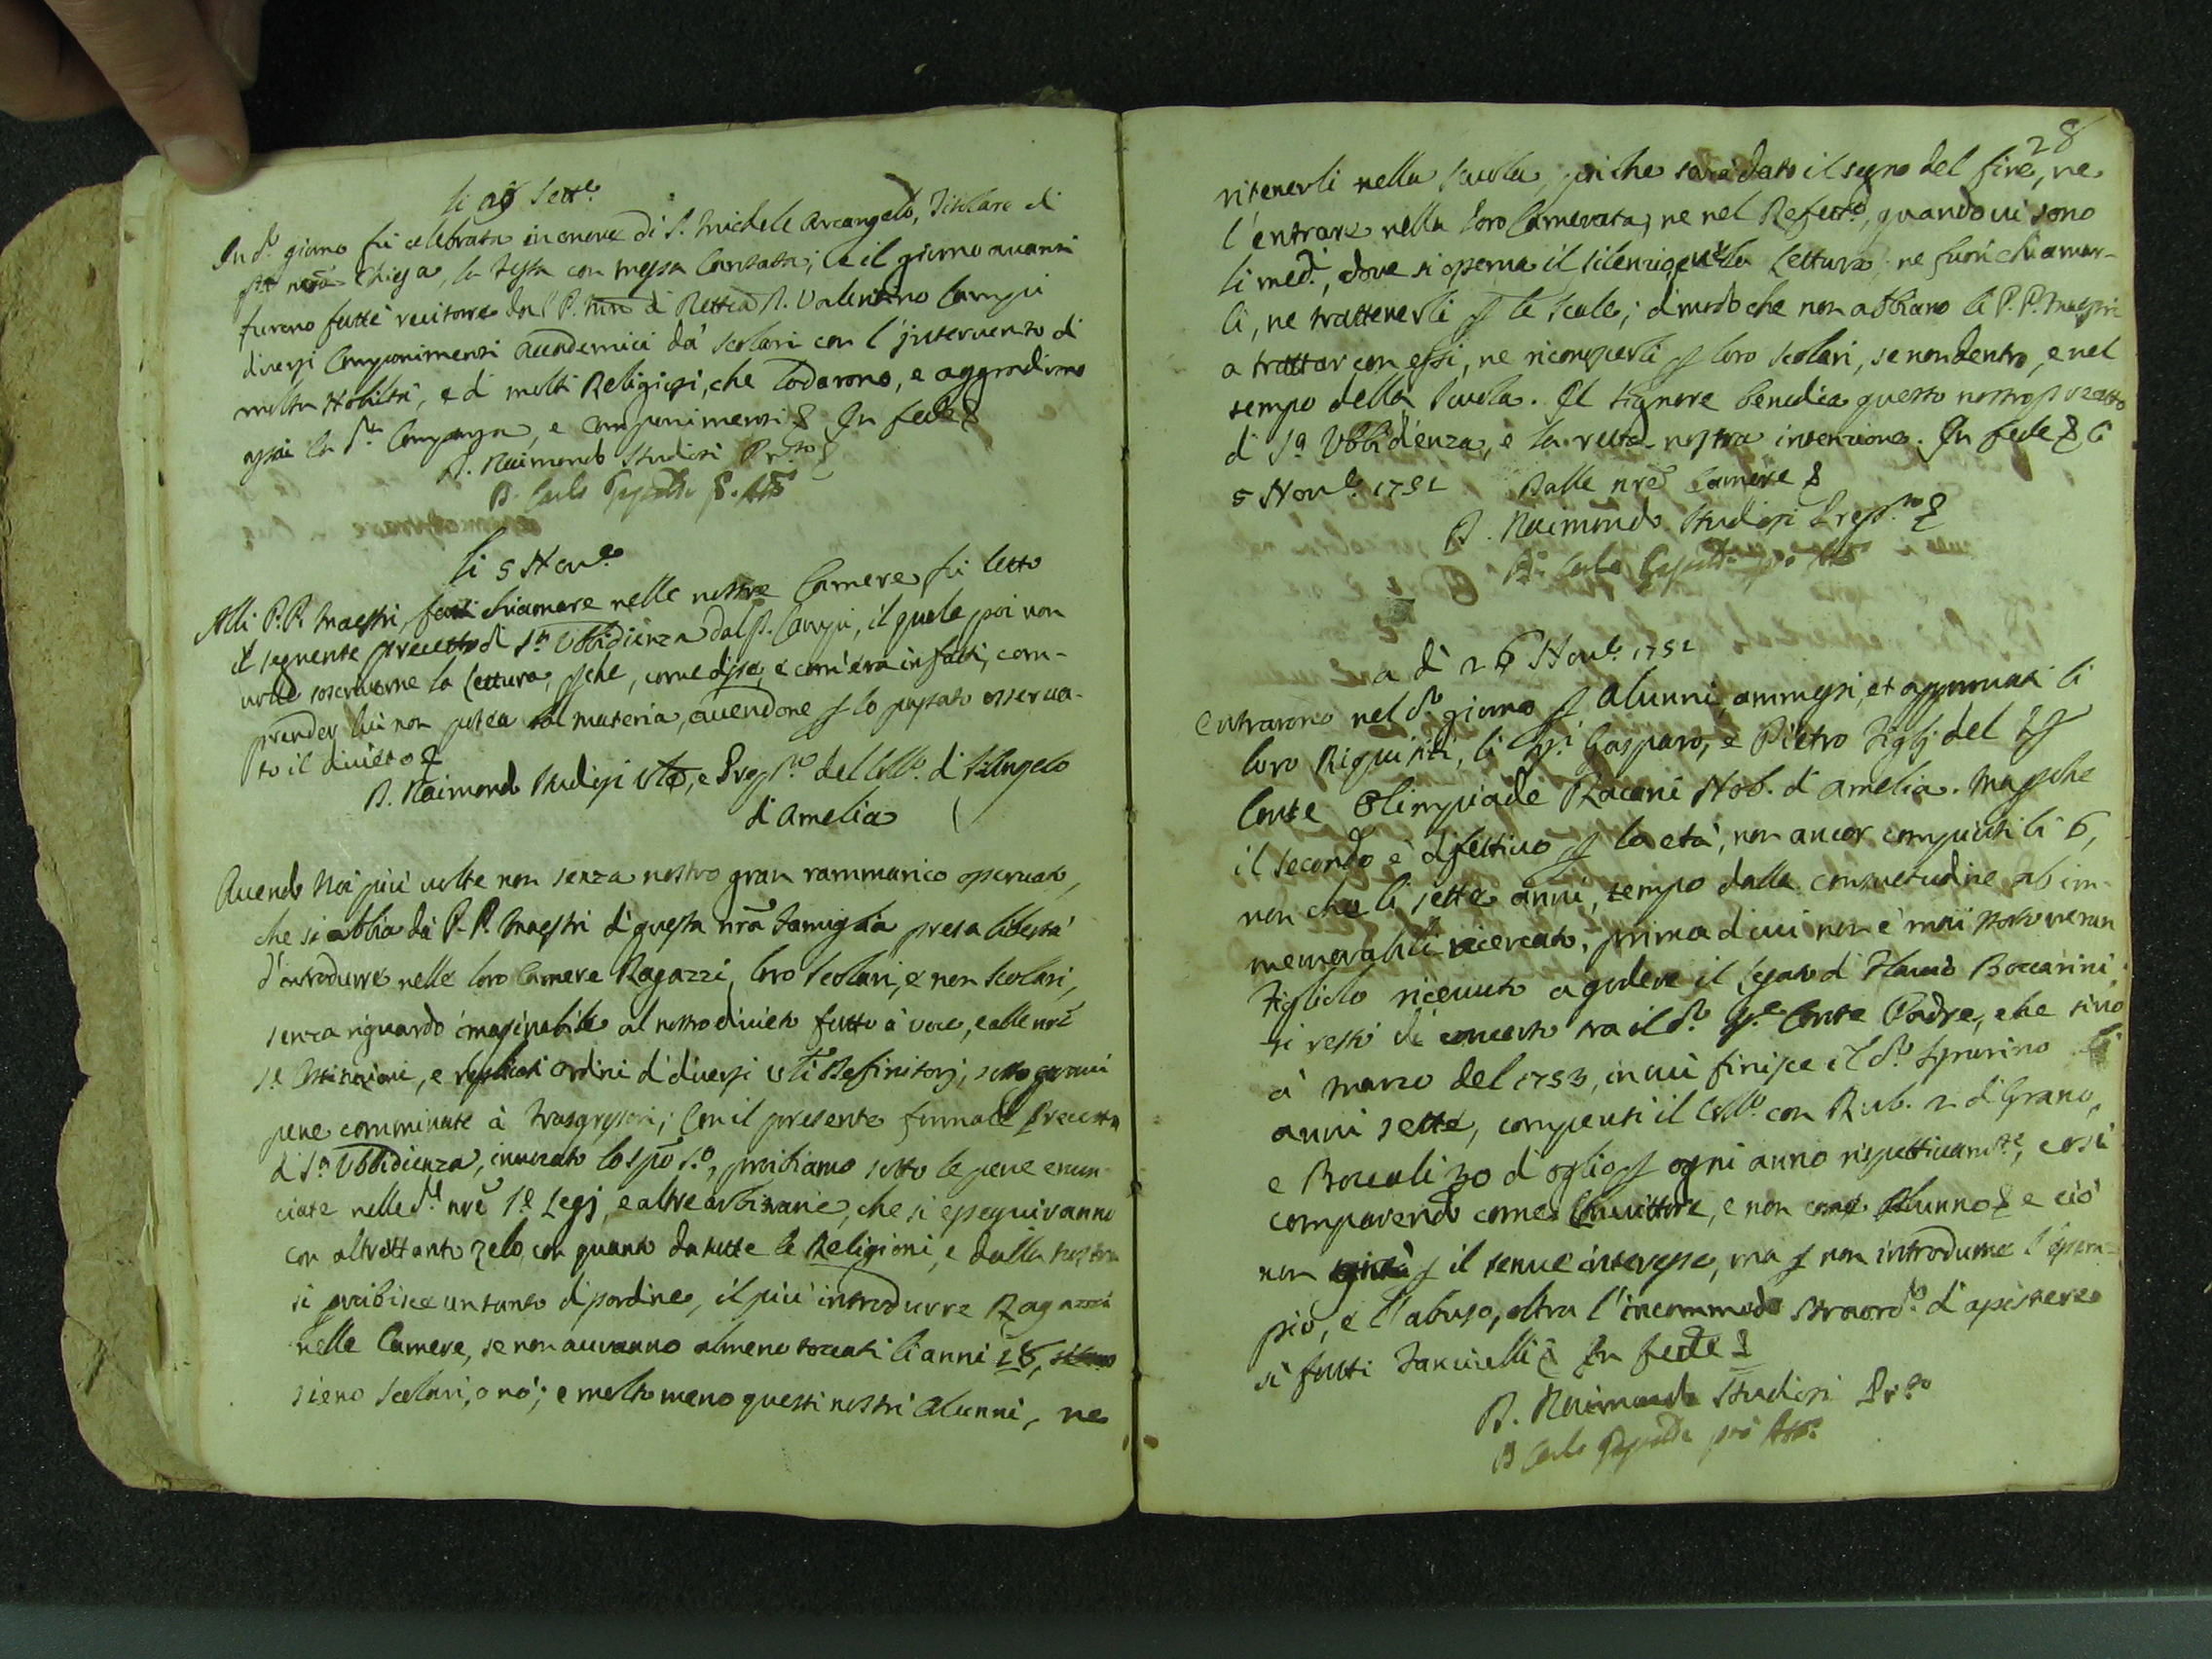 li 29 Sett.e
In d.o giorno fu celebrata in onore di S. Michele Arcangelo, Titolare di
q.ta nrã Chiesa, la Festa con messa Cantata; e il giorno avanti
furono fatte recitare dal P. Mro di Rett.a D. Valentino Campi
diversi Componimenti Accademici da' Scolari con l'intervento di
molta Nobiltà, e di molti Religiosi, che lodarono, e aggradirono
assai la d.ta Comparsa, e componimenti & In fede &
D. Raimondo Studiosi Pr.to
D. Carlo
li 5 Nov.e
Alli P.P. Maestri, fatti chiamare nelle nostre Camere fu letto
il seguente precetto di S.ta Ubbidienza dal P. Campi, il quale poi non
volle soscriverne la lettura, p che, come disse, e com'era infatti, com-
prender lui non potea tal materia, avendone p lo passato osserva-
to il divieto &
D. Raimondo Studiosi V.to, e Prep.to del Coll.o di S. Angelo
di Amelia
Avendo Noi più volte non senza nostro gran rammarico osservato,
che si abbia da' P.P. Maestri di questa nrã Famiglia presa libertà
d'introdurre nelle loro Camere Ragazzi, loro Scolari, e non Scolari,
senza riguardo imaginabile al nostro divieto fatto a voce, e alle nrẽ
S.e Costituzioni, e replicati ordini di diversi Definitorj, sotto gravi
pene comminate a' Trasgressori; Con il presente formale Precetto
di S.ta Ubbidienza, invocato lo Spõ S.o, proibiamo sotto le pene enun-
ciate nelle d.e nrẽ S.e Legj, e altre arbitrarie, che si eseguiranno
con altrettanto zelo, con quanto da tutte le Religioni, e dalla nostra
si proibisce un tanto disordine, il più introdurre Ragazzi
nelle Camere, se non avranno almeno toccati li anni 18,
sieno Scolari, o nò; e molto meno questi nostri Alunni, ne
28
ritenerli nella Scuola, poiche sarà dato il segno del fine, ne
l'entrare nella loro Camerata, ne nel Refett.o, quando vi sono
li med.i, dove si osserva il silenzio, e v'è la Lettura; ne fuori chiamar-
li, ne trattenerli p le Scale; di modo che non abbiano li P.P. Maestri
a trattar con essi, ne riconoscerli p loro scolari, se non dentro, e nel
tempo della Scuola. Il Signore benedica questo nostro precetto
di S.a Ubbidienza, e la retta nostra intenzione. In fede & li
5 Nov.e 1752 Dalle nrẽ Camere &
D. Raimondo Studiosi Prep.to &
D. Carlo
a dì 26 Nov.e 1752
Entrarono nel d.o giorno p Alunni, ammessi, et approvati li
loro Riquisiti, li SS.ri Gasparo, e Pietro Figlj del Sig
Conte Olimpiade Racani Nob. di Amelia. Ma p che
il secondo è difettivo p la età, non ancor compiuti li 6,
non che li sette anni, tempo dalla consuetudine ab im-
memorabili ricercato, prima di cui non è mai stato verun
Figliolo ricevuto a godere il Legato di Flavio Boccarini,
si restò di concerto tra il d.o Sig.e Conte Padre, che sino
a' Marzo del 1753, in cui finisce il d.o Sig.rino li
anni sette, compensi il Coll.o con Rub. 2 di Grano,
e Boccali 30 d'oglio p ogni anno rispettivam.te, così
comparendo come Convittore, e non come Alunno & e ciò
non già p il tenue interesse, ma p non introdurne l'esem-
pio, e l'abuso, oltra l'incommodo straord.o d'assistere
sì fatti Fanciulli & In fede &
D. Raimondo Studiosi Pr.to
D. Carlo